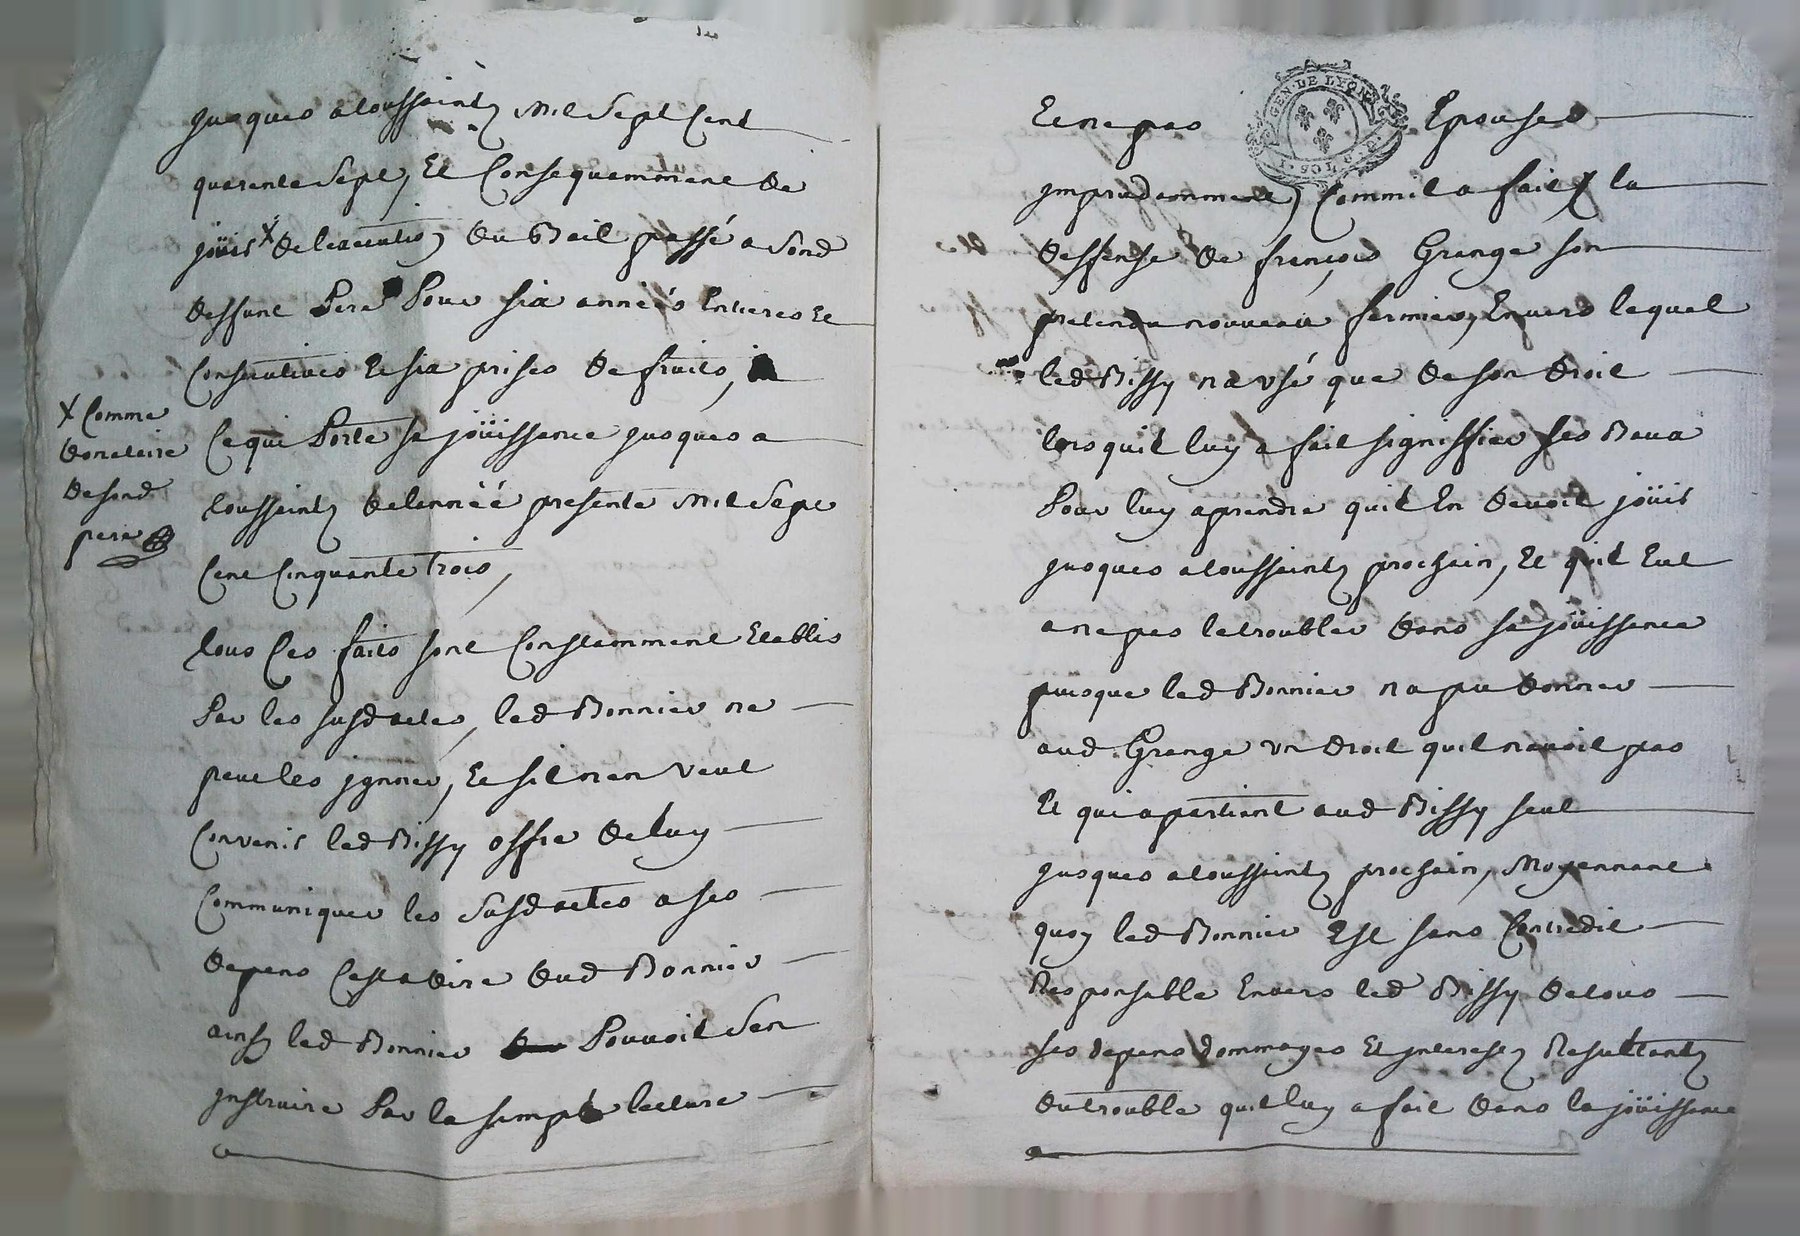 jusques a toussaintz mil sept cent
quarente sept, Et Consequemment de
joüir X de lexecution du Bail passé a sond
deffunt Pere Pour six années Entieres Et
Consecutives Et six prises de fruits,
Ce qui Porte sa joüissance jusques a
toussaintz de lannéé presente mil sept
Cent Cinquante trois,
X Comme
donataire
de sond
pere
tous Ces faits sont Constamment Etablis
Par les susd actes, led Bonnier ne
peut les ignorer, Et sil nen veut
Convenir led Bissy offre de luy
Communiquer les susd actes a ses
depens Cest a dire dud Bonnier
ainsy led Bonnier Pouvoit sen
jnstruire Par la simple lecture
Et ne pas Epouser
GEN. DE LYON
jmprudemment, Comme il a fait la
deffense de françois Grange son
pretendu nouveau fermier, Envers lequel
led Bissy na usé que de son droit
lors quil luy a fait signiffier ses Baux
Pour luy aprendre quil En devoit joüir
jusques a toussaintz prochain, Et quil Eut
a ne pas le troubler dans sa joüissance
puisque led Bonnier na pu donner
aud Grange un droit quil navoit pas
Et qui apartient aud Bissy seul
jusques a toussaintz prochain, Moyennant
quoy led Bonnier Est sans Contredit
Responsable Envers led Bissy de tous
ses depens dommages Et jnterestz Resultantz
du trouble quil luy a fait dans la joüissance